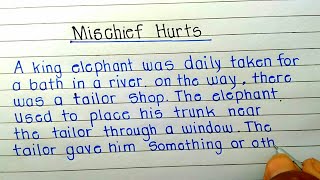 Mischief Hurts
A king elephant was daily taken for
a bath in a river. on the way, there
was a tailor shop. The elephant
used to place his trunk near
the tailor through a window. The
tailor gave him Somothing or oth